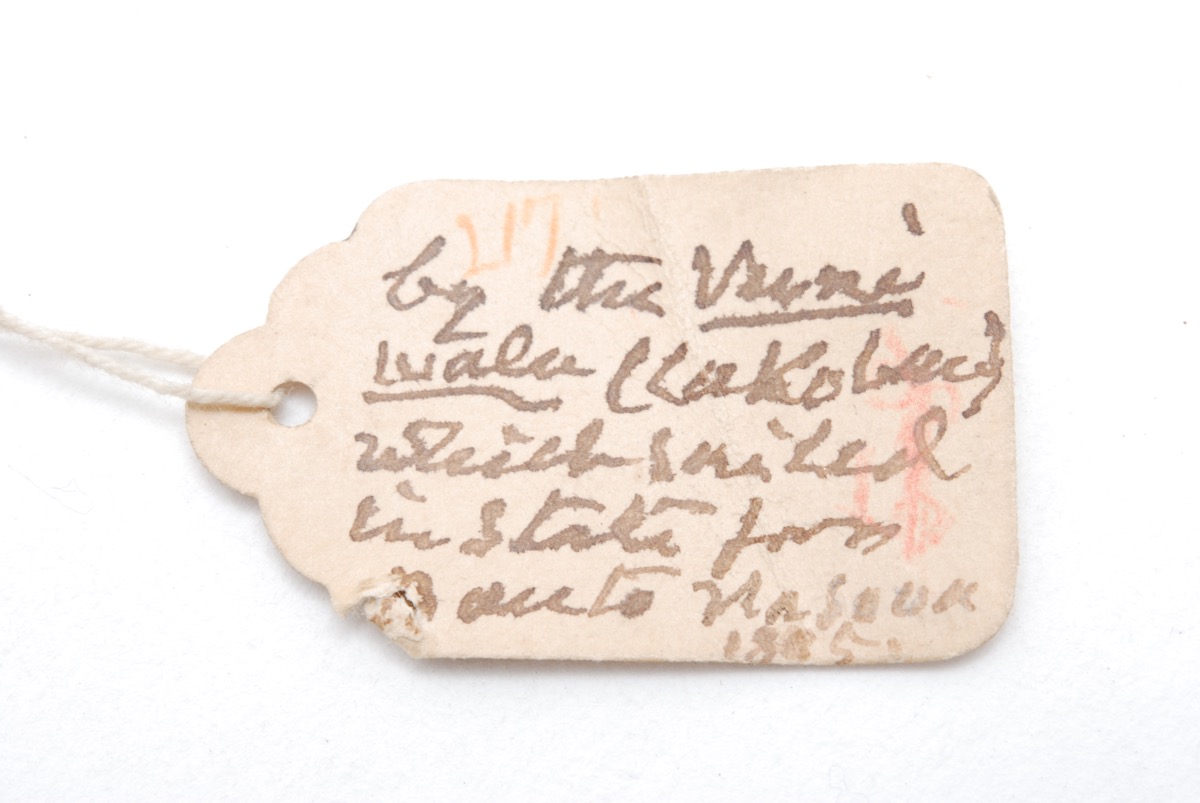 217
by the Vuni
wala (Cakobau)
which sailed
in state from
Bau to Nasova
1885.